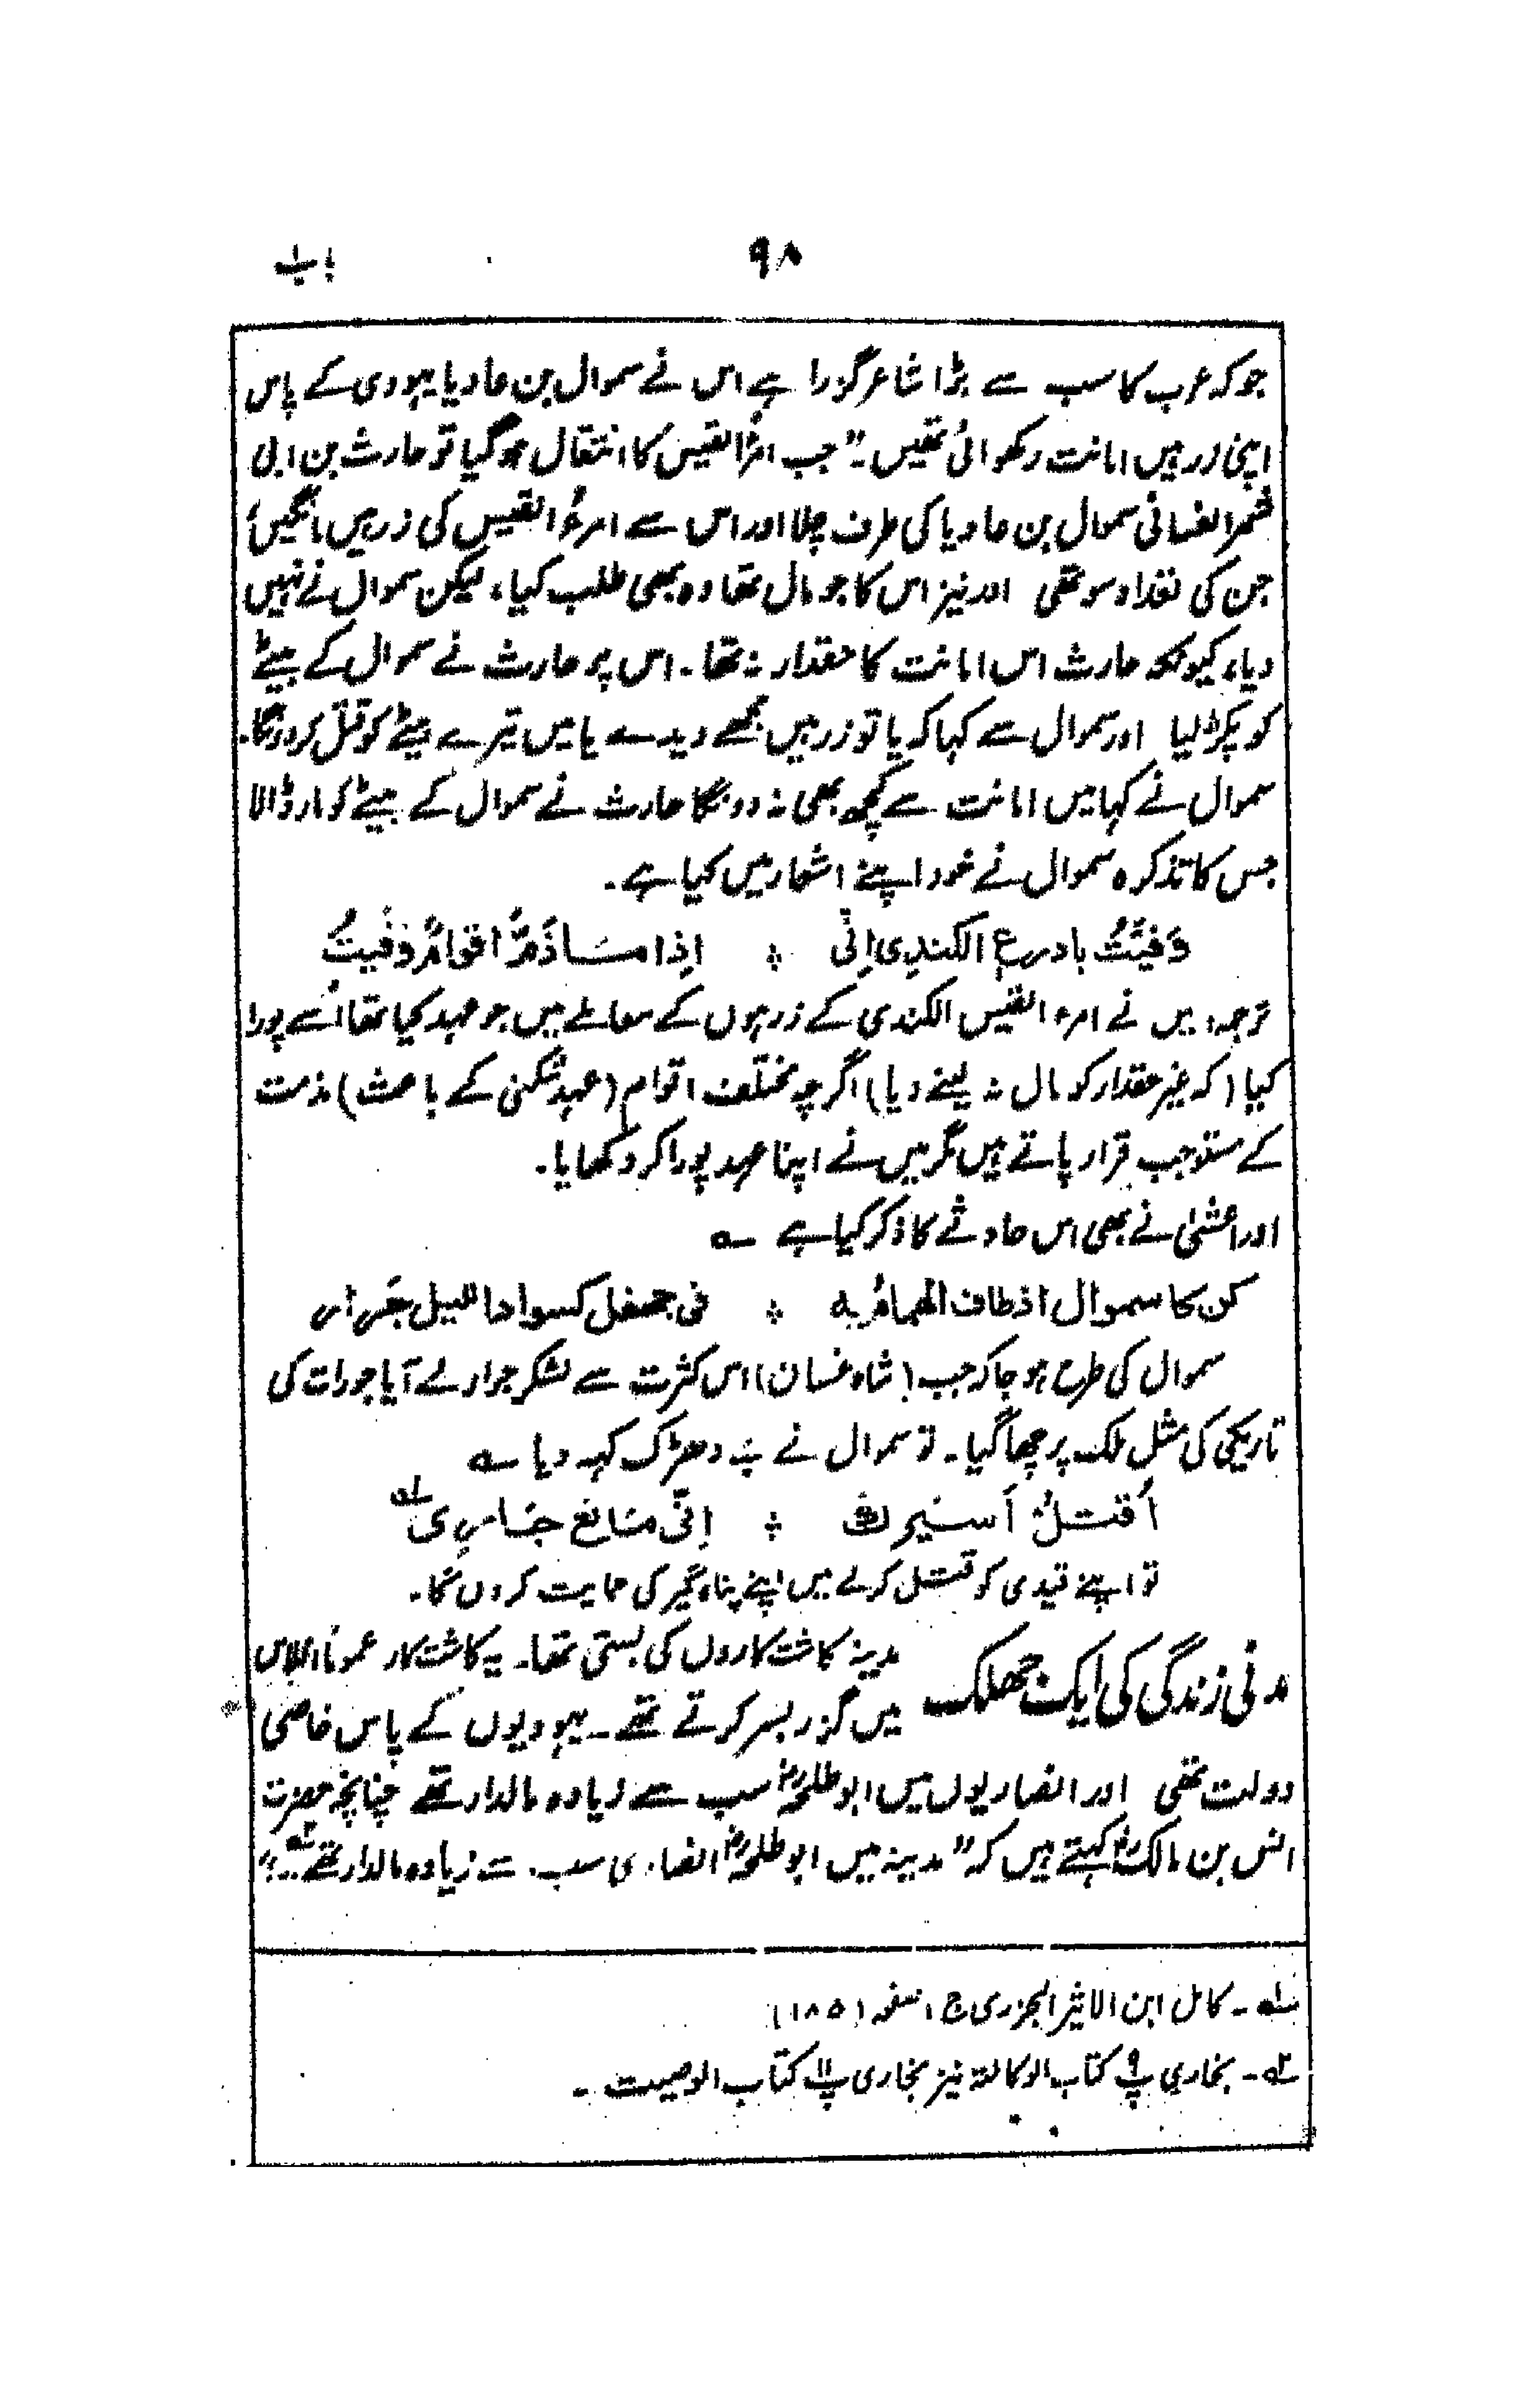 ۹۸
باب۱
جو کہ عرب کا سب سے بڑا شاعر گزرا ہے اس نے سموال بن عادیا یہودی کے پاس
اپنی زرہیں امانت رکھوائی تھیں۔" جب امرؤ القیس کا انتقال ہو گیا تو حارث بن ابی
شمر الغسانی سموال بن عادیا کی طرف چلا اور اس سے امرءُ القیس کی زرہیں مانگیں،
جن کی تعداد سو تھی اور نیز اس کا جو مال تھا وہ بھی طلب کیا، لیکن سموال نے نہیں
دیا، کیونکہ حارث اس امانت کا حقدار نہ تھا۔ اس پر حارث نے سموال کے بیٹے
کو پکڑ لیا اور سموال سے کہا کہ یا تو زرہیں مجھے دیدے یا میں تیرے بیٹے کو قتل کر دونگا۔
سموال نے کہا میں امانت سے کچھ بھی نہ دونگا حارث نے سموال کے بیٹے کو مار ڈالا
جس کا تذکرہ سموال نے خود اپنے اشعار میں کیا ہے۔
وَفَیْتُ بادرعِ الکندِی اِنّی ؞ اِذا مَا ذُمَّ اقوامٌ وَفیتُ
ترجمہ: میں نے امرء القیس الکندی کے زرہوں کے معاملے میں جو عہد کیا تھا اُسے پورا
کیا (کہ غیر حقدار کو مال نہ لینے دیا) اگرچہ مختلف اقوام (عہد شکنی کے باعث) مذمت
کے مستوجب قرار پاتے ہیں مگر میں نے اپنا عہد پورا کر دکھایا۔
اور اعشیٰ نے بھی اس حادثے کا ذکر کیا ہے ؎
کن کا سموال اذ طاف الھمامُ بہ ؞ فی جحفل کسواد اللیل جَرار
سموال کی طرح ہو جا کہ جب (شاہ غسان) اس کثرت سے لشکر جرار لے آیا جو رات کی
تاریکی کی مثل ملک پر چھا گیا۔ تو سموال نے بے دھڑک کہہ دیا ؎
اُقتلْ اَسیرکَ ؞ اِنّی مَانع جَارِی ؎۱
تو اپنے قیدی کو قتل کر لے میں اپنے پناہ گیر کی حمایت کروں گا۔
مدنی زندگی کی ایک جھلک
مدینہ کاشت کاروں کی بستی تھا۔ یہ کاشت کار عموماً افلاس
میں گزر بسر کرتے تھے۔ یہودیوں کے پاس خاصی
دولت تھی اور انصاریوں میں ابو طلحہؓ سب سے زیادہ مالدار تھے چنانچہ حضرت
انس بن مالکؓ کہتے ہیں کہ "مدینہ میں ابو طلحہؓ انصاری سب سے زیادہ مالدار تھے ؎۲۔"
؎۱۔ کامل ابن الاثیر الجزری ج ۱ صفحہ (۱۸۵)
؎۲۔ بخاری پ۹ کتاب الوکالۃ نیز بخاری پ۱۱ کتاب الوصیت۔